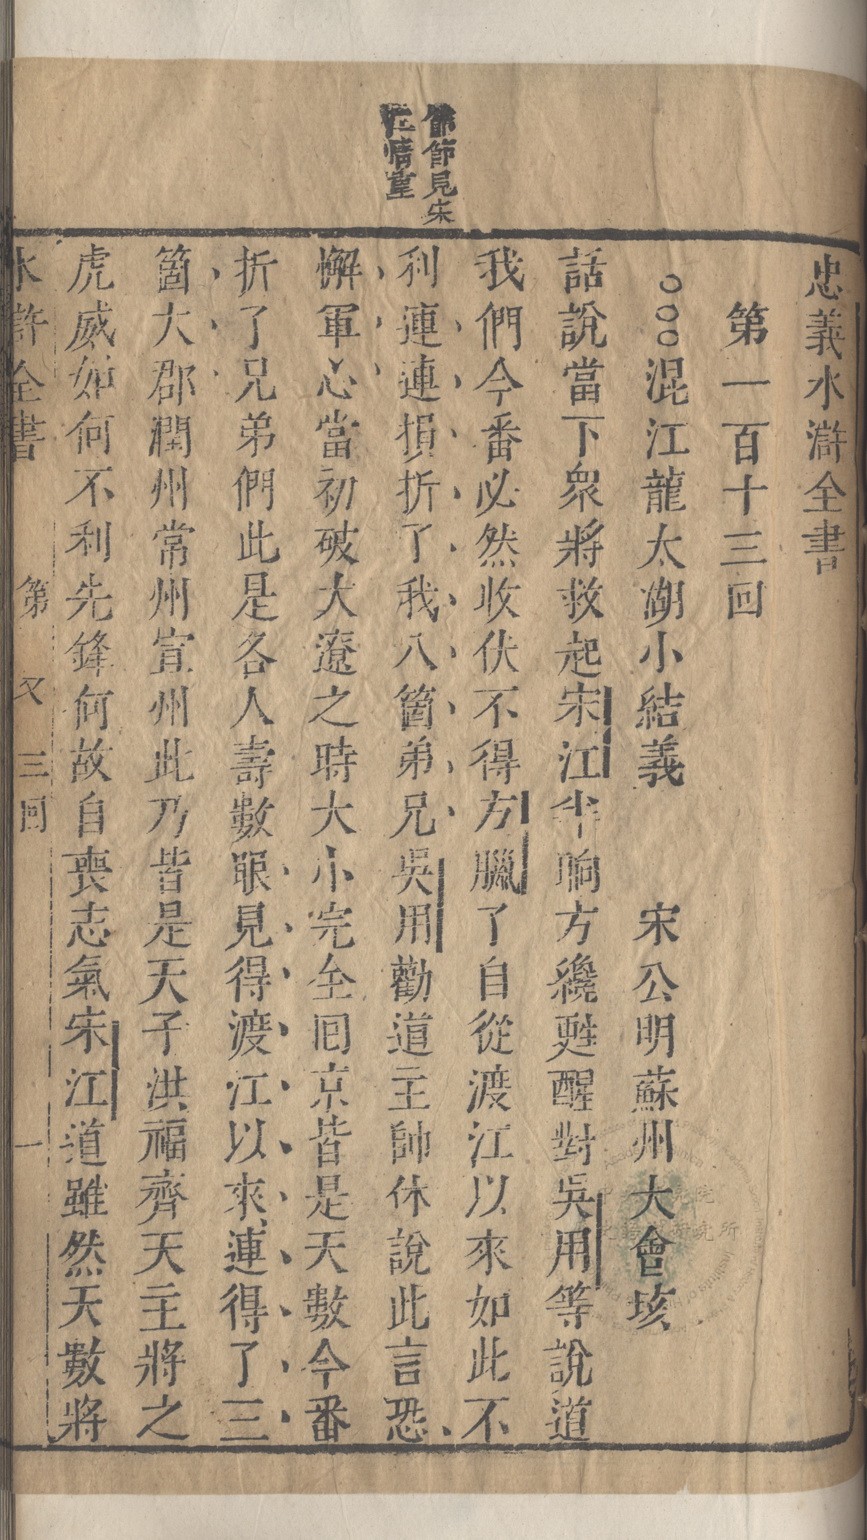 忠義水滸全書
第一百十三回
○○○混江龍太湖小結義 宋公明蘇州大會垓
話說當下衆將救起宋江半晌方纔甦醒對吳用等說道
我們今番必然收伏不得方臘了自從渡江以來如此不
利連連損折了我八箇弟兄吳用勸道主帥休說此言恐
懈軍心當初破大遼之時大小完全囘京皆是天數今番
折了兄弟們此是各人壽數眼見得渡江以來連得了三
箇大郡潤州常州宣州此乃皆是天子洪福齊天主將之
虎威如何不利先鋒何故自喪志氣宋江道雖然天數將
節見宋
江情重
水滸全書 第 三囘 一